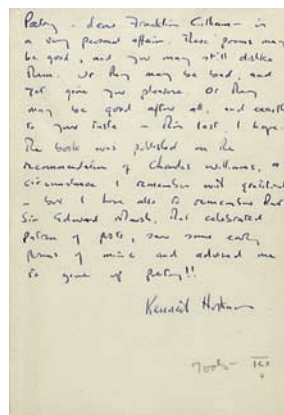 Poetry - dear Franklin Gilliam - is
a very personal affair. These poems may
be good, and you may still dislike
them. Or they may be bad, and
yet give you pleasure. Or they
may be good after all, and exactly
to your taste - this last I hope.
The book was published on the
recommendation of Charles Williams, a
circumstance I remember with gratitude
- but I have also to remember that
Sir Edward Marsh, that celebrated
patron of poets, saw some early
poems of mine and advised me
to give up poetry!!
Kenneth Hopkins